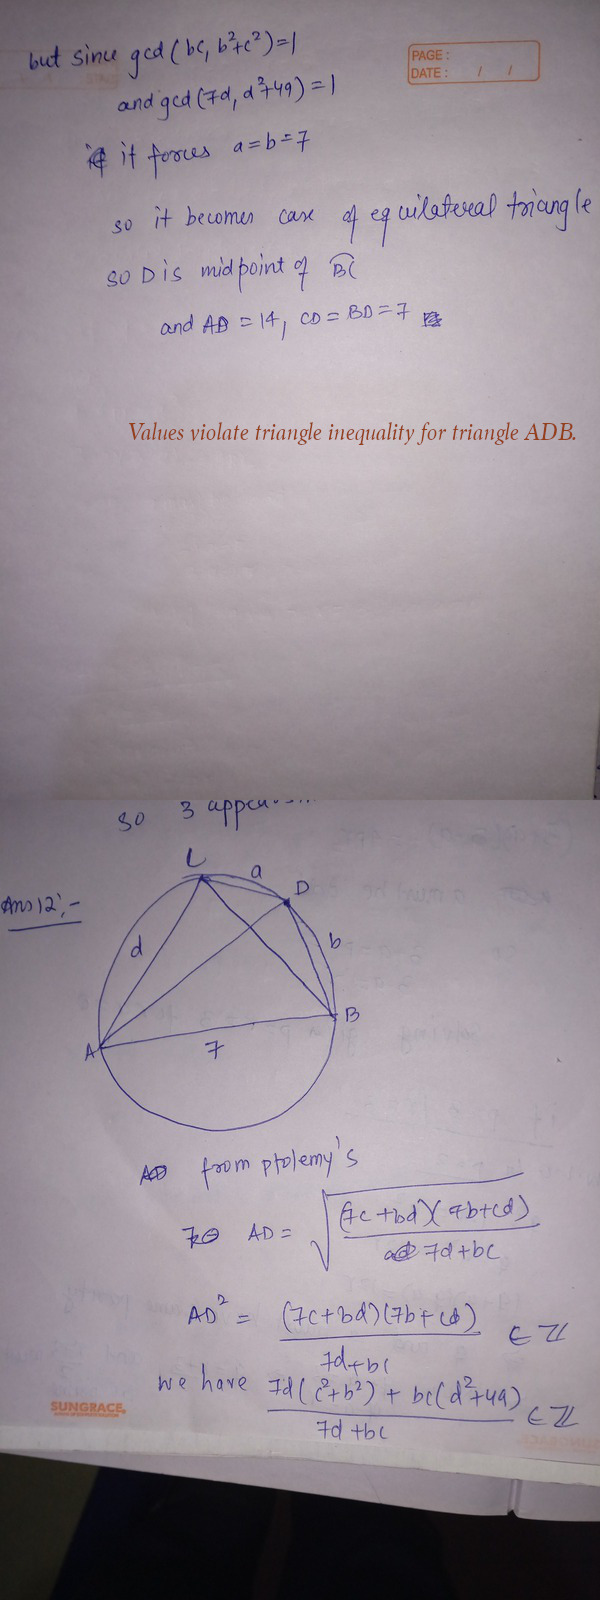 but since gcd(bc, b²+c²)=1
PAGE :
DATE : / /
and gcd(7d, d²+49)=1
it forces a=b=7
so it becomes case of equilateral triangle
so D is midpoint of BC
and AD = 14, CD = BD = 7
Values violate triangle inequality for triangle ADB.
so 3 appea
Ans 12:-
C
a
D
d
b
A
7
B
from ptolemy's
AD = √((7c+bd)(7b+cd) / 7d+bc)
AD² = (7c+bd)(7b+cd) / 7d+bc ∈ ℤ
we have 7d(c²+b²) + bc(d²+49) / 7d+bc ∈ ℤ
SUNGRACE